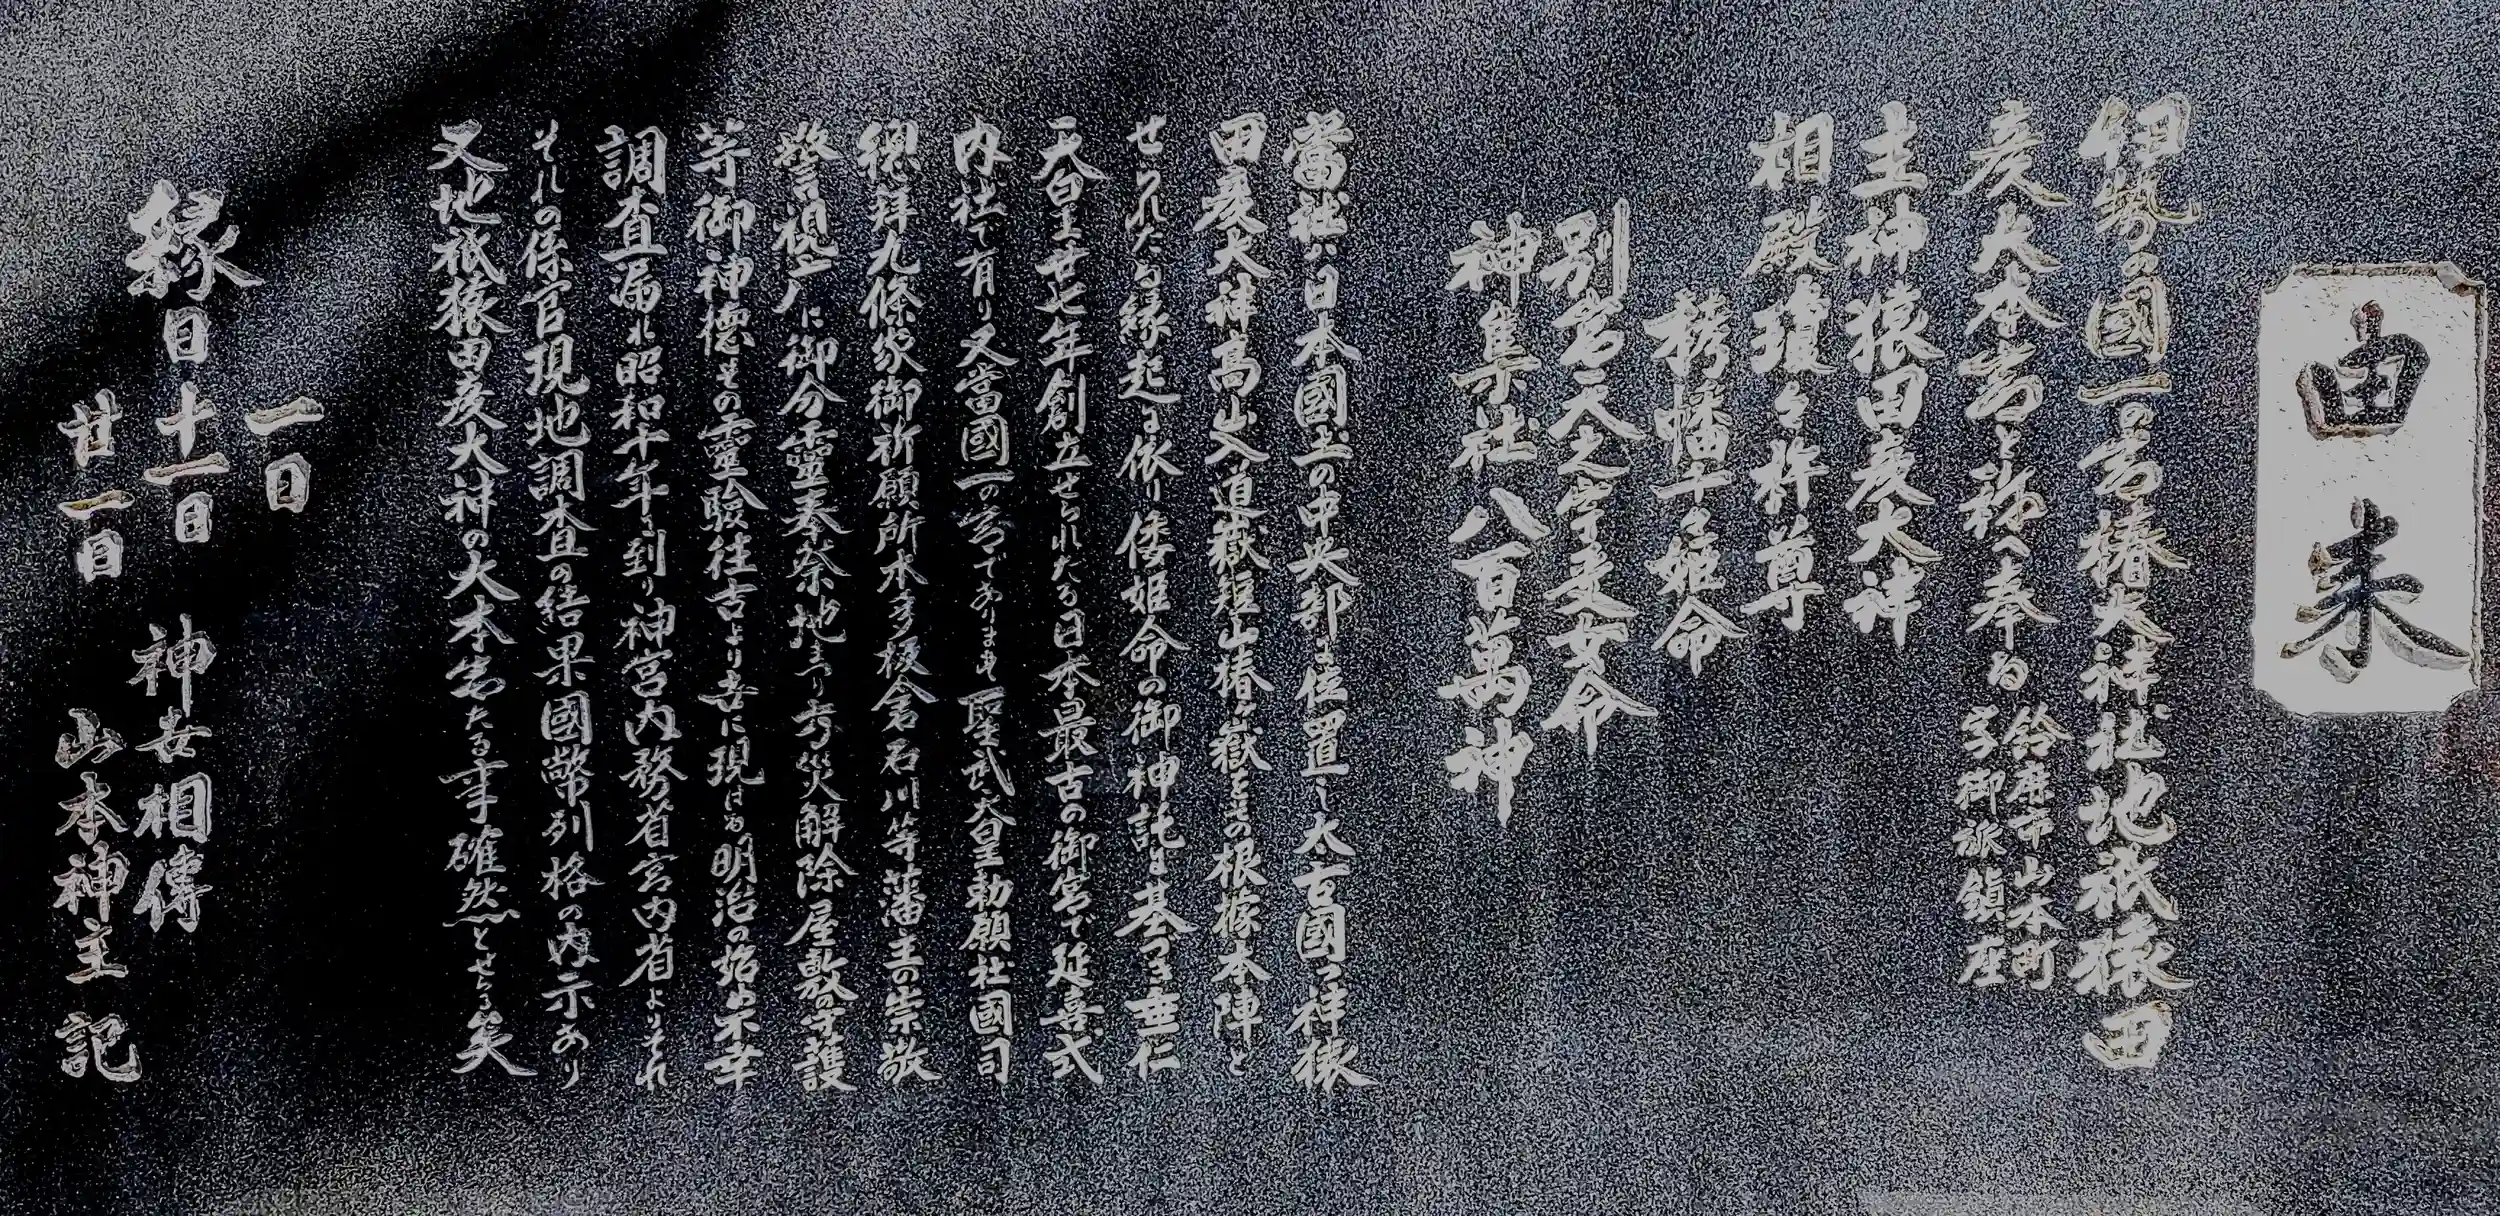 由来
伊勢の國一の宮椿大神社地祇猿田
彦大本宮と称へ奉る
鈴鹿市山本町
字御派鎮座
主神猿田彦大神
相殿瓊々杵尊
栲幡千々姫命
別宮天之宇受女命
神集社八百萬神
當社ハ日本國土の中央部に位置し太古國つ神猿
田彦大神高山入道嶽短山椿ヶ嶽をその根據本陣と
せられたる縁起に依り倭姫命の御神託に基つき垂仁
天皇廿七年創立せられたる日本最古の御宮で延喜式
内社で有り又當國一の宮であります 聖武天皇勅願社國司
總拝九條家御祈願所本多板倉石川等藩主の崇敬
警視庁に御分靈奉祭地まつり方災解除屋敷の守護
等御神徳その靈験往古より世に現はる明治の始め不幸
調査漏れ昭和十年に到り神宮内務省宮内省よりそれ
それの係官現地調査の結果國幣列格の内示あり
又地祇猿田彦大神の大本宮たる事確然とせらる矣
縁日
一日
十一日
廿一日
神世相傳
山本神主 記